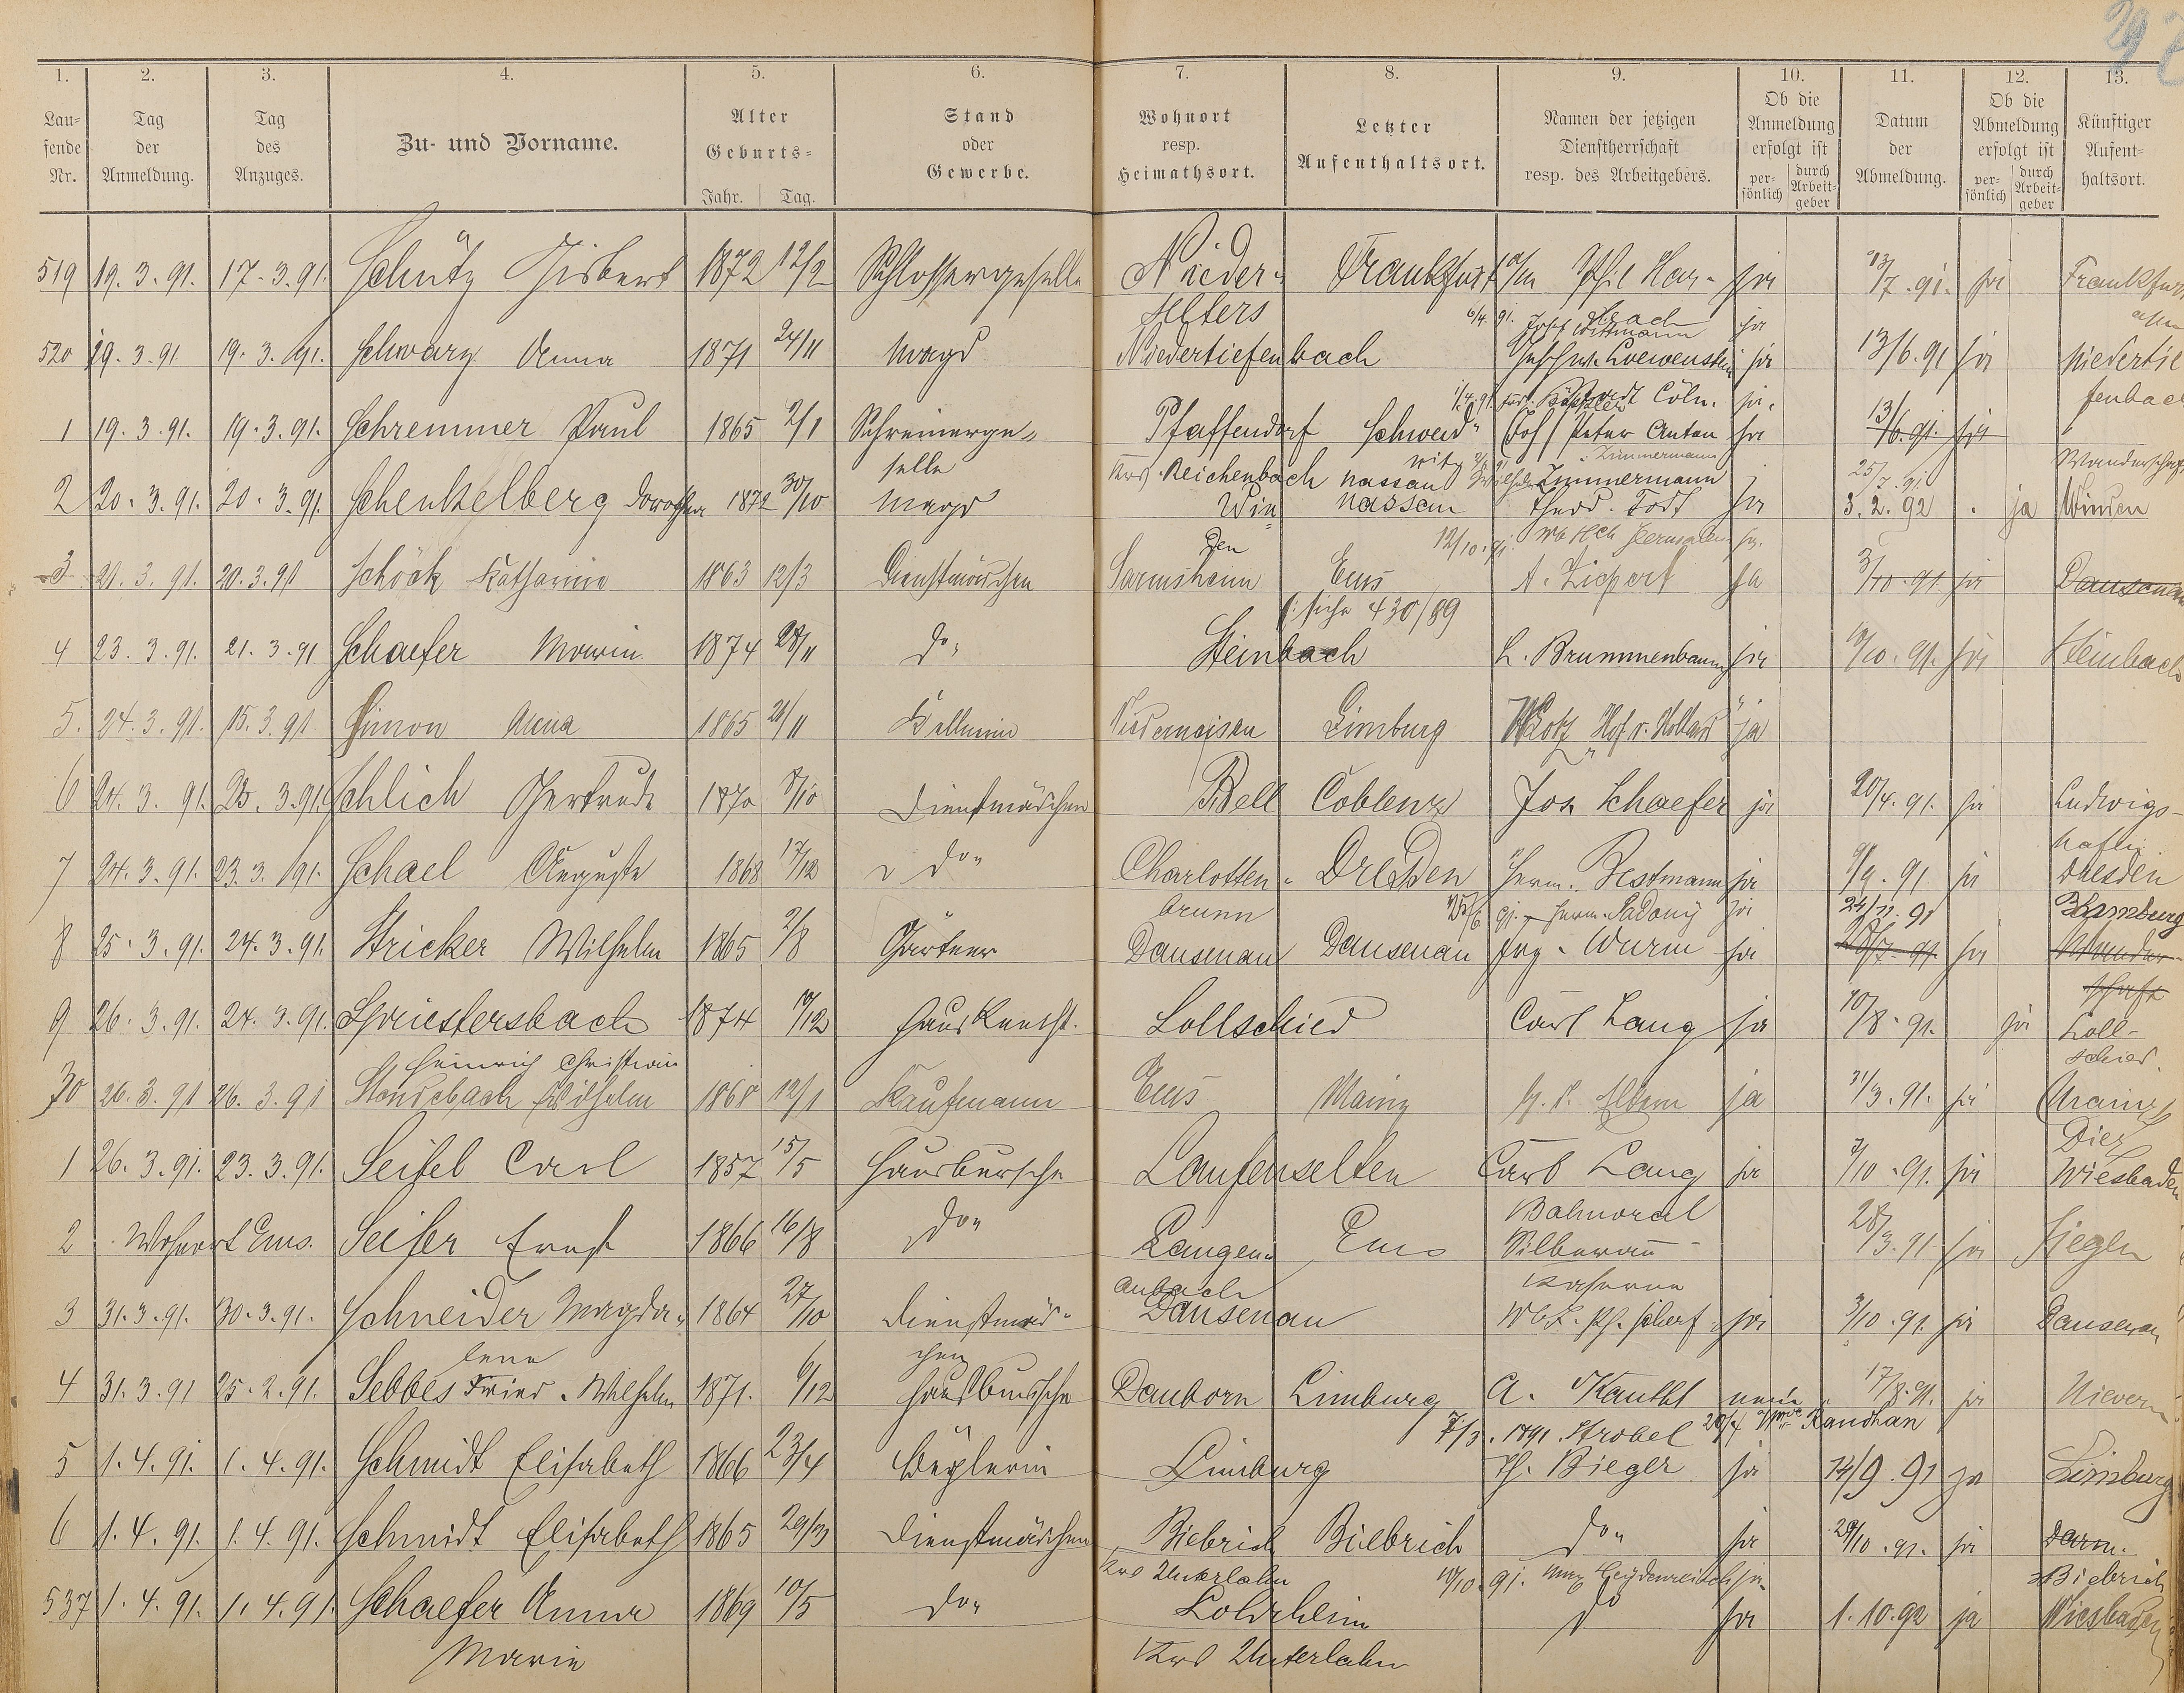 1. 2. 3. 4. 5. 6. 7. 8. 9. 10. 11. 12. 13.
Lau-fende Nr. Tag der Anmeldung. Tag des Anzuges. Zu- und Vorname. Alter Geburts- Jahr. Tag. Stand oder Gewerbe. Wohnort resp. Heimathsort. Letzter Aufenthaltsort. Namen der jetzigen Dienstherrschaft resp. des Arbeitgebers. Ob die Anmeldung erfolgt ist per-sönlich durch Arbeit-geber Datum der Abmeldung. Ob die Abmeldung erfolgt ist per-sönlich durch Arbeit-geber Künftiger Aufent-haltsort.
519 19. 3. 91. 17. 3. 91. Schütz Gisbert 1872 12/2 Schlossergeselle Nieder- Frankfurt a/m Phil Har- ja 13/7. 91. ja Frankfurt
Selters 6/4. 91. Josef Wittmann ja
520 19. 3. 91 19. 3. 91. Schwarz Anna 1871 24/11 Magd Niedertiefenbach Geschw. Loewenstein ja 13/6. 91 ja Niedertie
1/4. 91 Cöln. ja. fenbach
1 19. 3. 91. 19. 3. 91. Schremmer Paul 1865 2/1 Schreinerge- Pfaffendorf Schweid- Peter Anton ja 13/6. 91. ja
selle nitz Zimmermann Wanderschaft
Krs Reichenbach Nassau Wilhelm Zimmermann 25/7. 91
2 20. 3. 91. 20. 3. 91. Schenkelberg Dorothea 1872 30/10 Magd Win Nassau Theod. Todt ja 3. 2. 92 ja Winden
den 12/10. 91. Wb Hch Jerusalem ja.
3 21. 3. 91. 20. 3. 91 Schöck Katharina 1863 12/3 Dienstmädchen Sarmsheim Ems A. Lippert ja 3/10. 91. ja Dausenau
siehe 430/89
4 23. 3. 91. 21. 3. 91 Schaefer Maria 1874 28/11 do. Steinbach L. Brummenbaum ja 10/10. 91. ja Steinbach
5. 24. 3. 91. 15. 3. 91 Simon Anna 1865 21/11 Kellnerin Niederneisen Limburg Hof v. Holland ja
6 24. 3. 91. 23. 3. 91. Schlich Gertrude 1870 8/10 Dienstmädchen Bell Coblenz Jos. Schaefer ja 20/4. 91. ja Ludwigs-
hafen
7 24. 3. 91. 23. 3. 91. Schael Auguste 1868 17/12 do. Charlotten- Dresden Herm. Bestmann ja 9/9. 91 ja Dresden
brunn 25/6 91. Herm. Sadony ja 24/11. 91 Hamburg
8 25. 3. 91. 24. 3. 91. Stricker Wilhelm 1865 2/8 Gärtner Dausenau Dausenau Aug. Wurm ja ja Wander-
schaft
9 26. 3. 91. 24. 3. 91. Spriestersbach 1874 10/12 Hausknecht. Lollschied Carl Lang ja 10/8. 91. ja Loll-
Heinrich Christian schied.
30 26. 3. 91 26. 3. 91 Wilhelm 1868 12/1 Kaufmann Ems Mainz Eltern ja 31/3. 91. ja Mainz
Diez
1 26. 3. 91. 23. 3. 91. Seifel Carl 1857 15/5 Hausbursche Laufenselten Carl Lang ja 2/10. 91. ja Wiesbaden
2 Wohnort Ems. Seifer Ernst 1866 16/8 do. Langen- Ems Silberau- 28/3. 91 ja Siegen
aubach Kaserne
3 31. 3. 91. 30. 3. 91. Schneider Magda- 1864 27/10 Dienstmäd- Dausenau ja 3/10. 91. ja Dausenau
lena chen
4 31. 3. 91 25. 2. 91. Sebbes Fried. Wilhelm 1871. 6/12 Hausbursche Dauborn Limburg A. Kauth nein 17/8. 91. ja Nievern
7/3. 1891. Strobel
5 1. 4. 91. 1. 4. 91. Schmidt Elisabeth 1866 23/4 Büglerin Limburg Ph. Bieger ja 14/9. 91 ja Limburg
6 1. 4. 91. 1. 4. 91. Schmidt Elisabeth 1865 29/3 Dienstmädchen Biebrich Biebrich do. ja 29/10. 91. ja Darm.
Krs Unterlahn 10/10. 91. ja. Biebrich
537 1. 4. 91. 1. 4. 91. Schaefer Anna 1869 10/5 do. Lohrheim do ja 1. 10. 92 ja Wiesbaden
Maria Krs Unterlahn